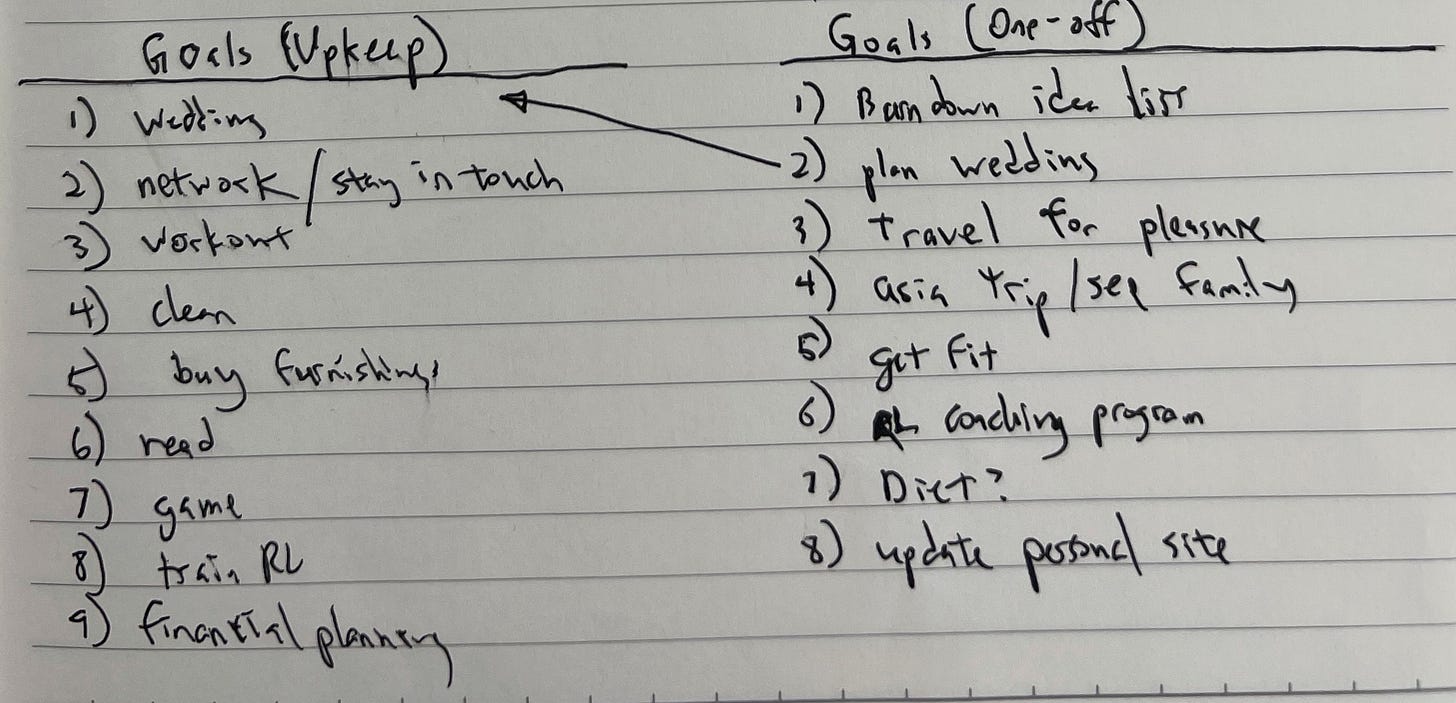 Goals (Upkeep)
1) Wedding
2) network/stay in touch
3) workout
4) clean
5) buy furnishings
6) read
7) game
8) train RL
9) financial planning
Goals (One-off)
1) Burn down idea list
2) plan wedding
3) travel for pleasure
4) asia trip/see family
5) get fit
6) coaching program
7) Diet?
8) update personal site